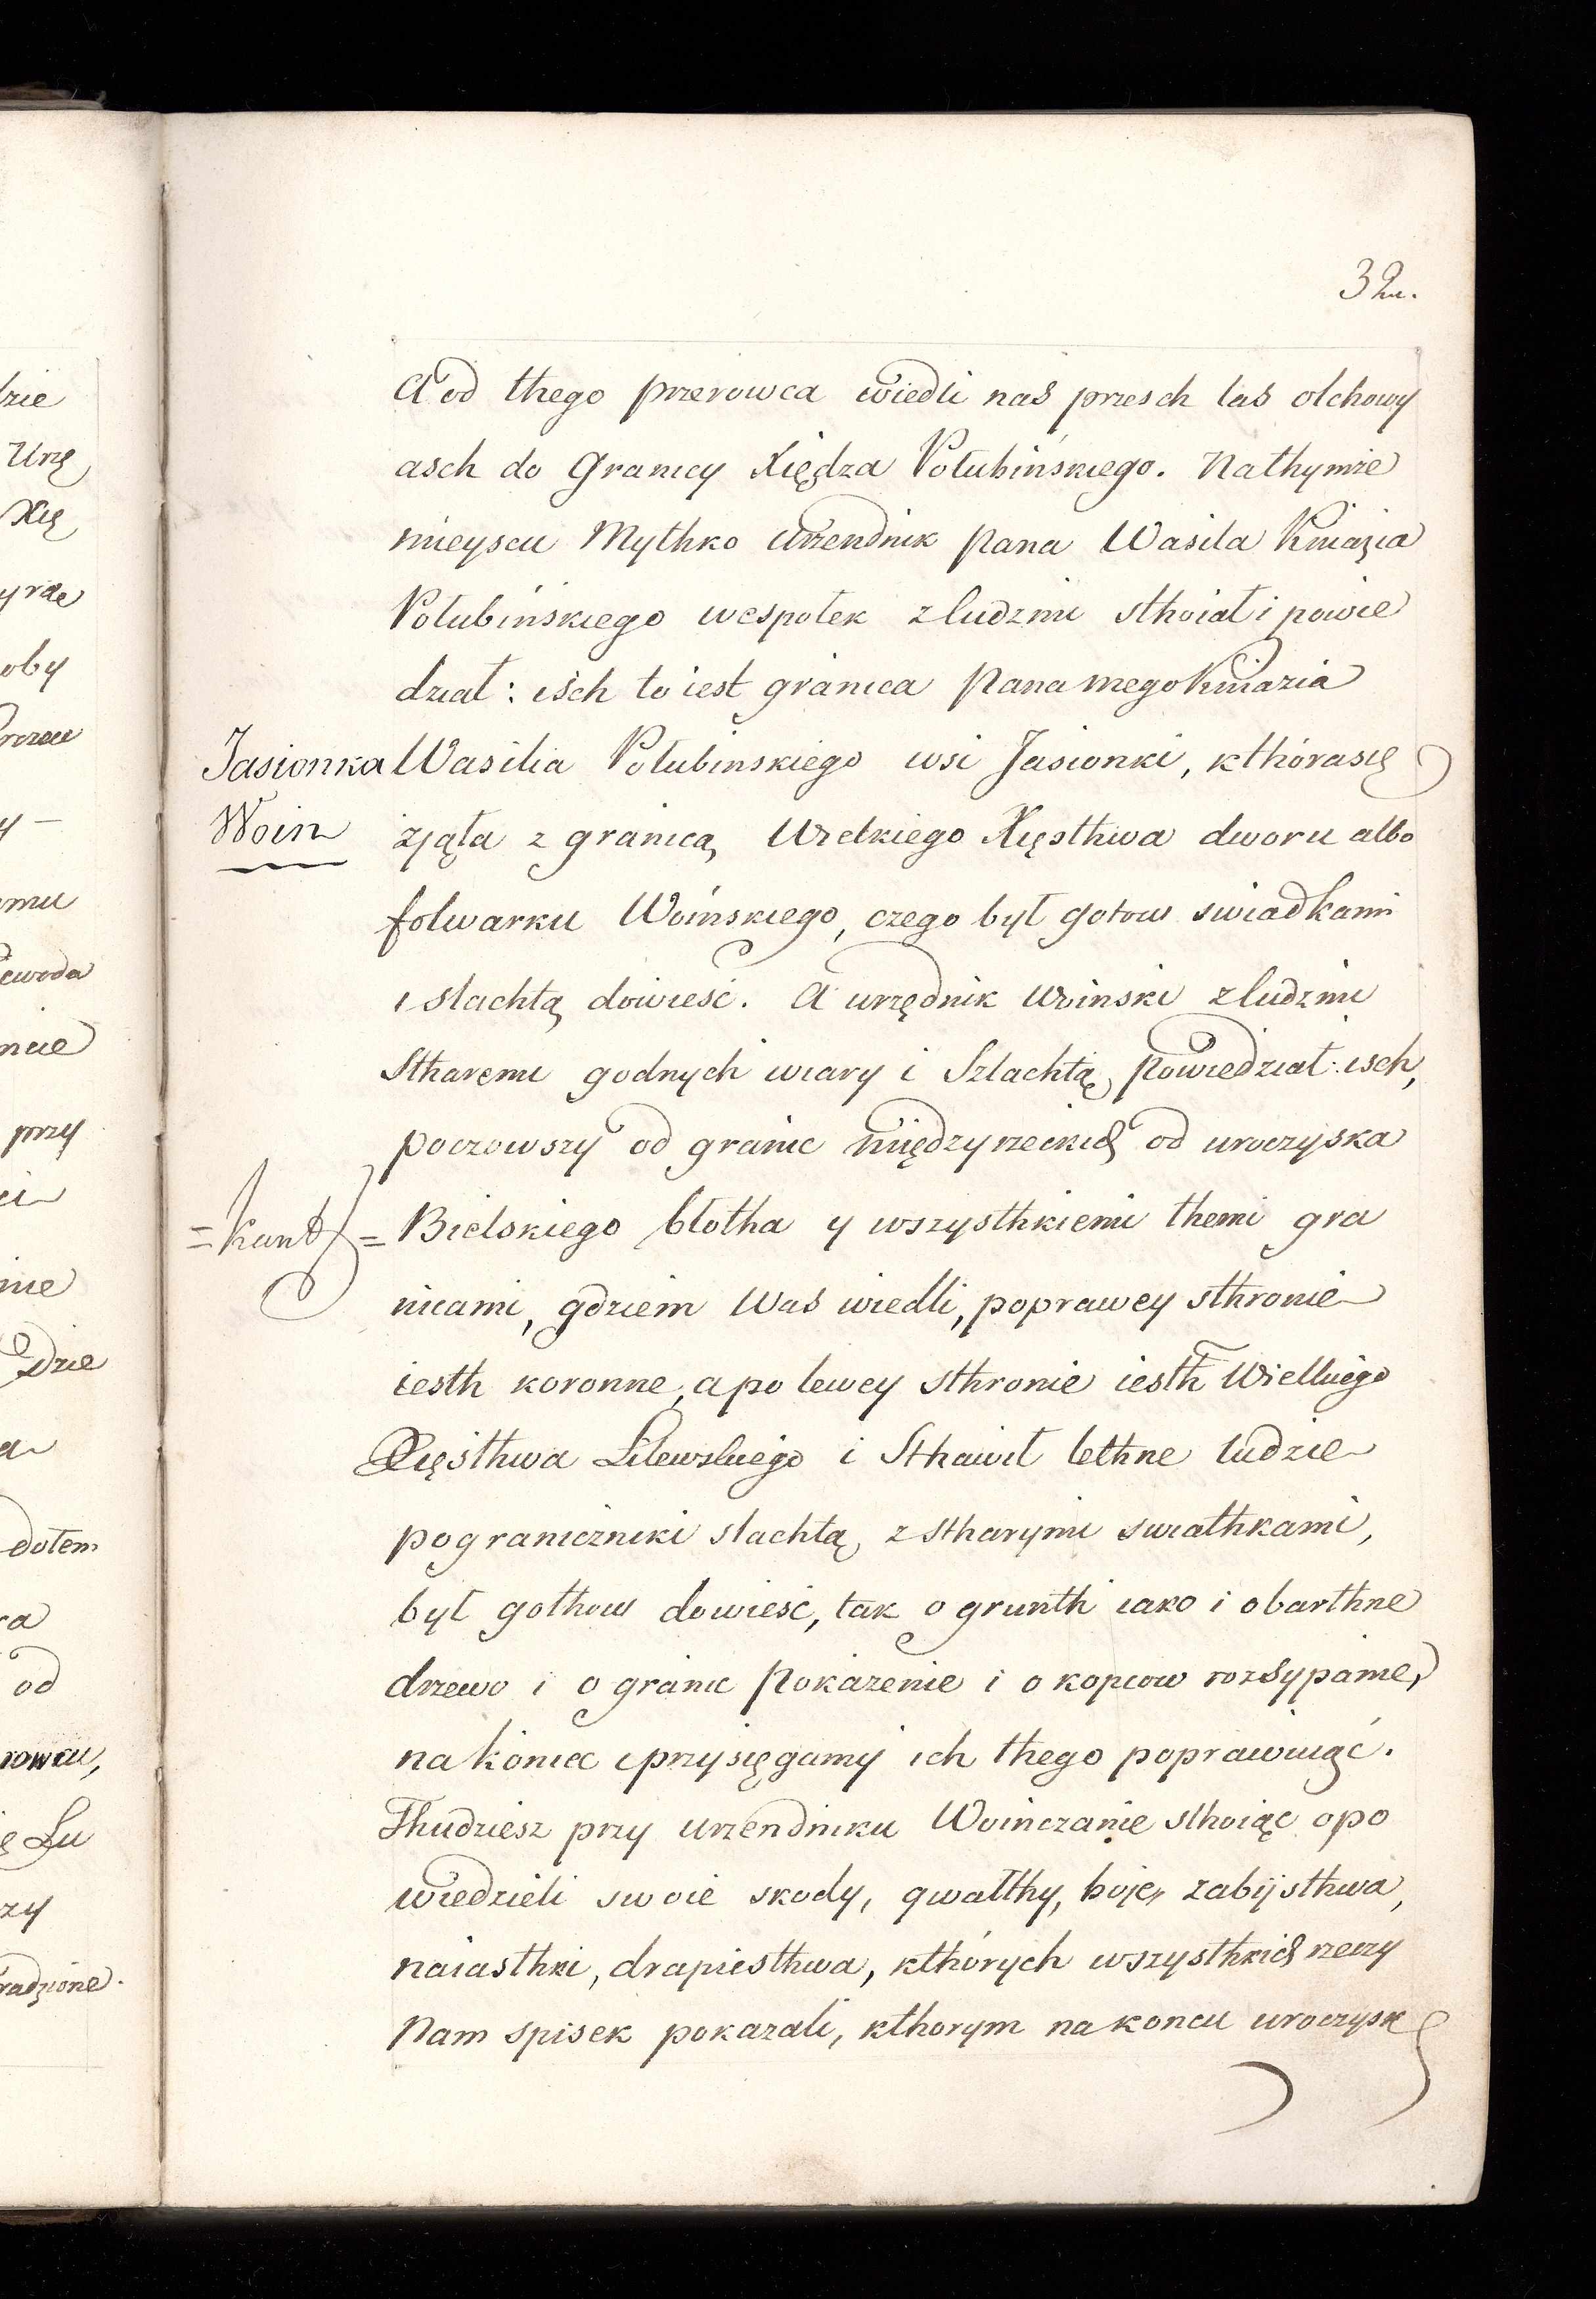 32.
A od thego przerowca wiedli nas przesch las olchowy
asch do Granicy Xiędza Połubińskiego. Nathymże
mieyscu Mythko urzendnik pana Wasila Kniazia
Połubińskiego wespołek z ludzmi sthoiał i powie
dział: isch to iest granica Pana mego Kniazia
Jasionka Wasilia Połubinskiego wsi Jasionki, kthórasię
Woin zjąła z granicą Wielkiego Xięsthwa dworu albo
folwarku Woińskiego, czego był gotow swiadkami
i slachtą dowieść. A urzędnik Woinski z ludzmi
Stharemi godnych wiary i Szlachtą, powiedział: isch,
poczowszy od granic międzyrzeckich od uroczyska
=kunt= Bielskiego błotha y wszysthkiemi themi gra
nicami, gdziem Was wiedli, poprawey sthronie
iesth koronne, a po lewey sthronie iesth Wielkiego
Xięsthwa Litewskiego i Sthawił lethne ludzie
pograniczniki slachtą z stharymi swiathkami,
był gothow dowieść, tak o grunth iako i obarthne
drzewo i o granic pokazenie i o kopcow rozsypanie,
na koniec i przysięgamy ich thego poprawiuąć.
Thudziesz przy urzendniku Woinczanie sthoiąc opo
wiedzieli swoie skody, gwałthy, boje, zabijsthwa,
naiasthki, drapiesthwa, kthórych wszysthkich rzeczy
Nam spisek pokazali, kthorym na koncu uroczysk